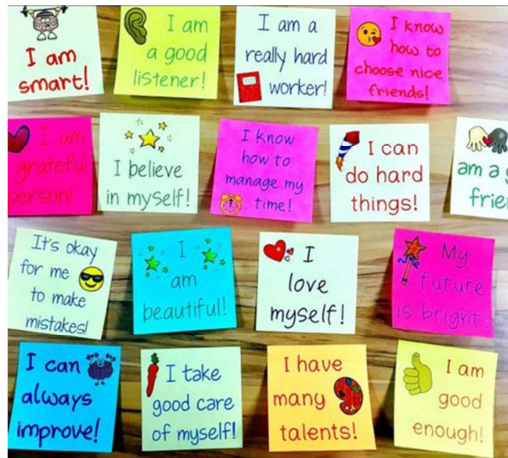 I am
smart!
I am
a good
listener!
I am a
really hard
worker!
I know
how to
choose nice
friends!
I am
grateful
person!
I believe
in myself!
I know
how to
manage my
time!
I can
do hard
things!
am a g
frien
It's okay
for me
to make
mistakes!
I
am
beautiful!
I
love
myself!
My
future
is bright!
I can
always
improve!
I take
good care
of myself!
I have
many
talents!
I am
good
enough!